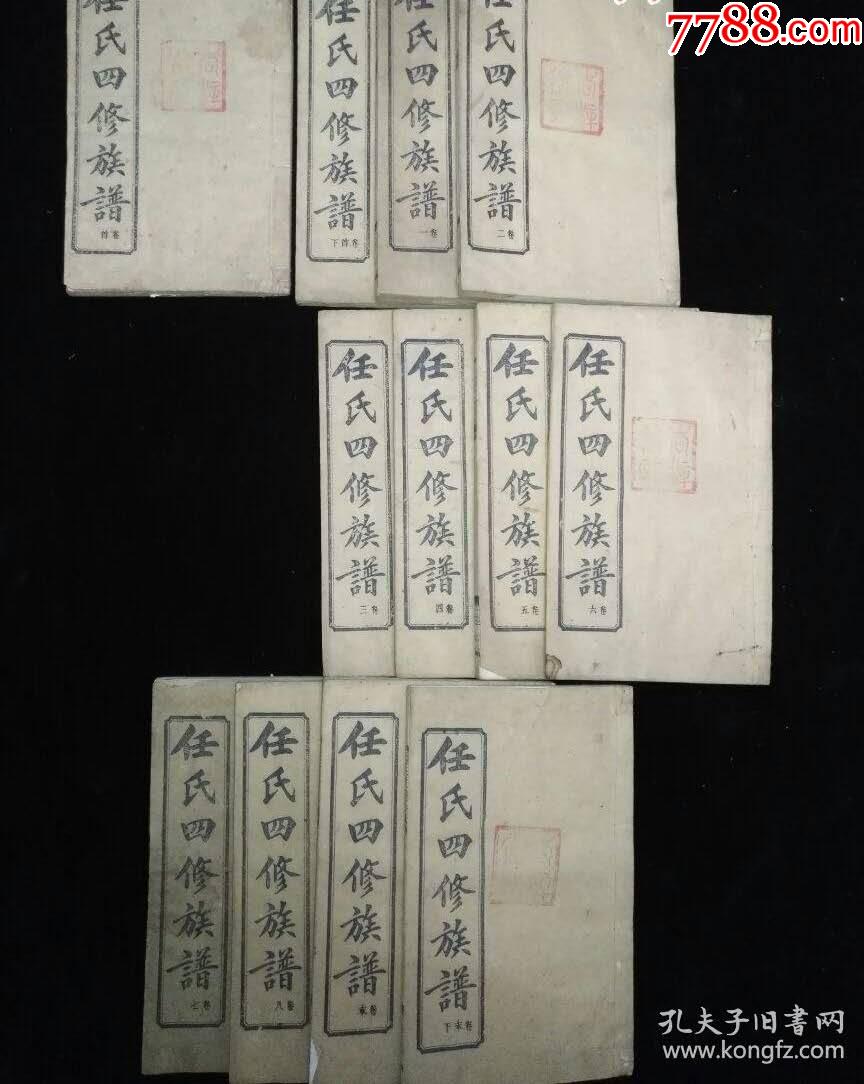 7788.com
任氏四修族譜
卷首
任氏四修族譜
卷首下
任氏四修族譜
卷一
任氏四修族譜
卷二
任氏四修族譜
卷三
任氏四修族譜
卷四
任氏四修族譜
卷五
任氏四修族譜
卷六
任氏四修族譜
卷七
任氏四修族譜
卷八
任氏四修族譜
卷末
任氏四修族譜
卷末下
孔夫子旧书网
www.kongfz.com